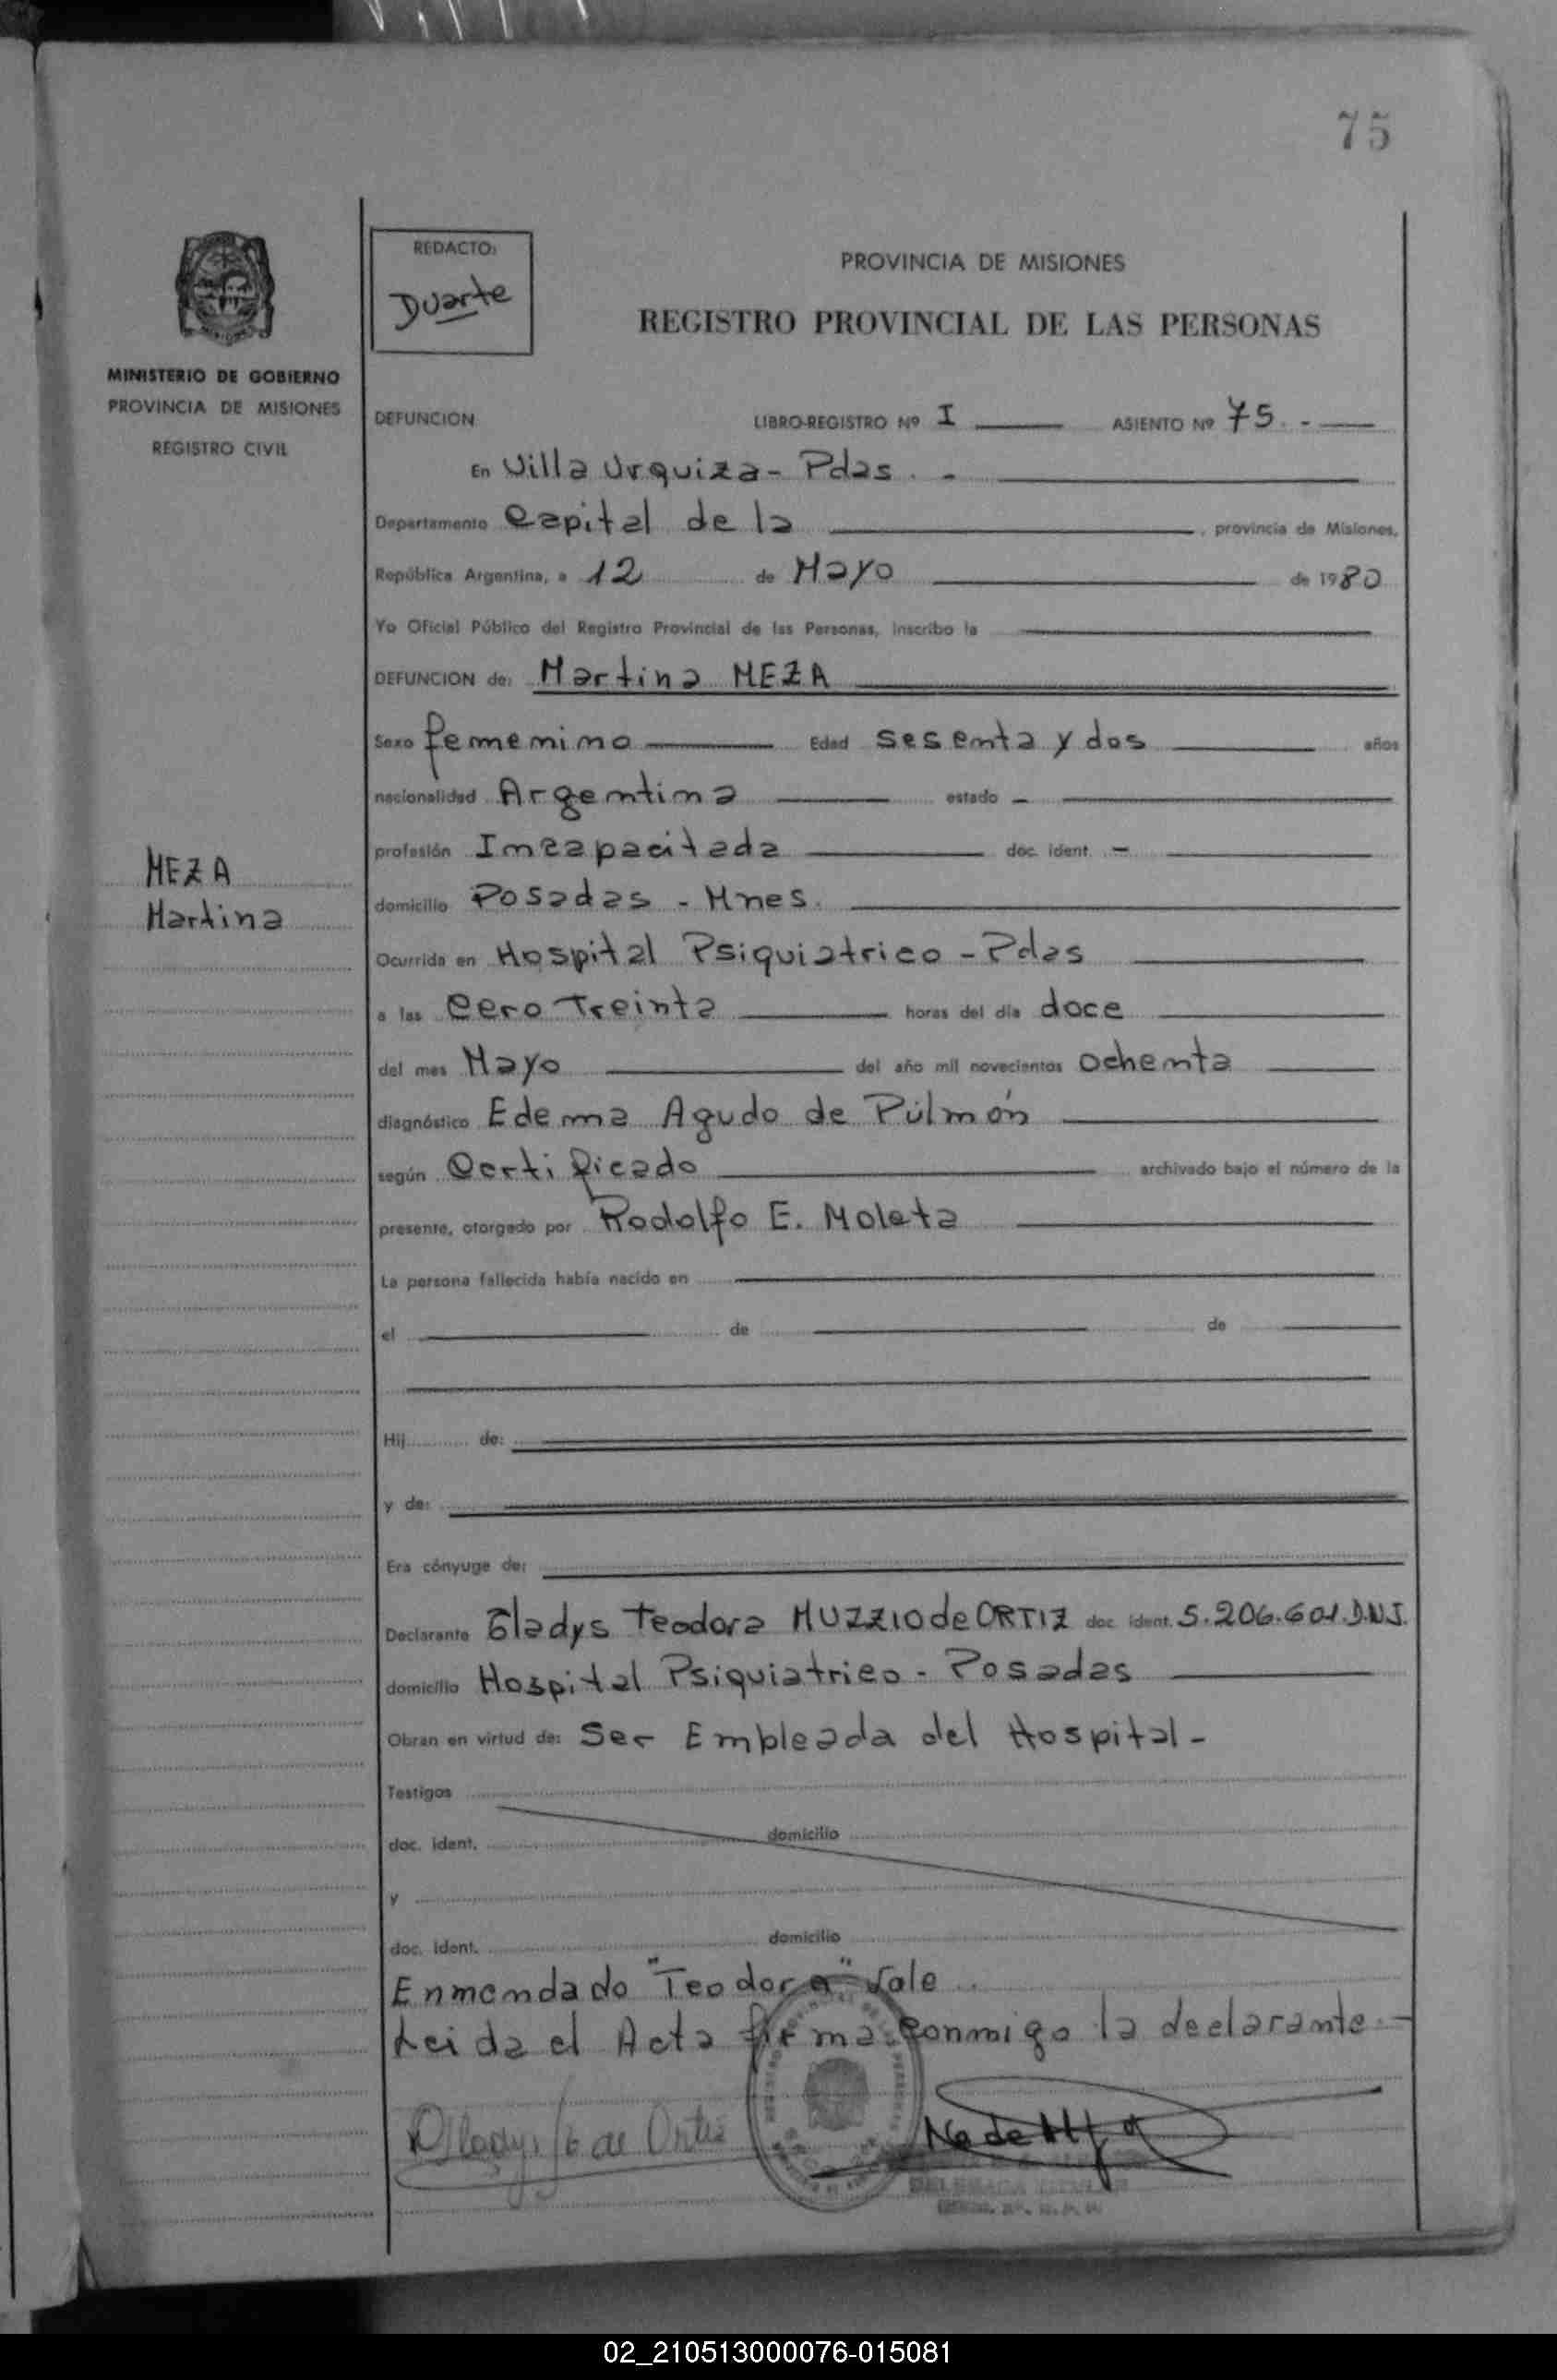 75
REDACTO:
Duarte
PROVINCIA DE MISIONES
REGISTRO PROVINCIAL DE LAS PERSONAS
MINISTERIO DE GOBIERNO
PROVINCIA DE MISIONES
REGISTRO CIVIL
DEFUNCION LIBRO-REGISTRO Nº I ASIENTO Nº 75.-
En Villa Urquiza - Pdas. -
Departamento Capital de la , provincia de Misiones,
República Argentina, a 12 de Mayo de 1980
Yo Oficial Público del Registro Provincial de las Personas, inscribo la
DEFUNCION de: Martina MEZA
Sexo femenino Edad sesenta y dos años
nacionalidad Argentina estado -
profesión Incapacitada doc. ident. -
MEZA
Martina
domicilio Posadas - Mnes.
Ocurrida en Hospital Psiquiatrico - Pdas
a las Cero Treinta horas del día doce
del mes Mayo del año mil novecientos ochenta
diagnóstico Edema Agudo de Púlmón
según Certificado archivado bajo el número de la
presente, otorgado por Rodolfo E. Moleta
La persona fallecida había nacido en
el de de
Hij de:
y de:
Era cónyuge de:
Declarante Gladys Teodora MUZZIO de ORTIZ doc. ident. 5.206.601.D.N.I.
domicilio Hospital Psiquiatrico - Posadas
Obran en virtud de: Ser Empleada del Hospital -
Testigos
doc. ident. domicilio
y
doc. ident. domicilio
Enmendado "Teodora" Vale
Leida el Acta firma conmigo la declarante -
Gladys de Ortiz
02_210513000076-015081